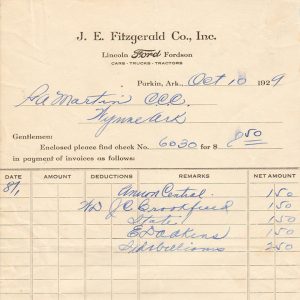 J. E. Fitzgerald Co., Inc.
Lincoln Ford Fordson
CARS - TRUCKS - TRACTORS
Parkin, Ark., Oct 10 1929
Martin CCC.
Wynne Ark
Gentlemen:
Enclosed please find check No. 6030 for $ 8.50
in payment of invoices as follows:
DATE AMOUNT DEDUCTIONS REMARKS NET AMOUNT
8/1 Central 150
J C Brookfield 150
State 150
E Dadkins 150
Williams 250